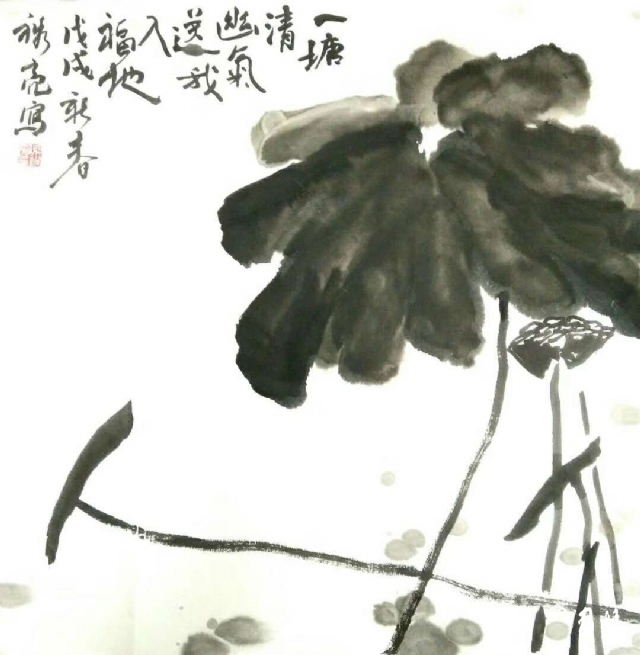 一塘
清
幽氣
送我
入
福地
戊戌新春
亮寫